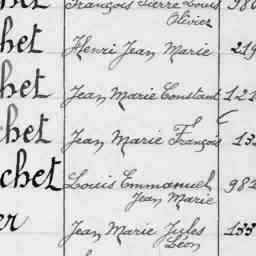 het François Pierre Louis 980
Olivier
het Henri Jean Marie 219
het Jean Marie Constant 121
chet Jean Marie François 13
chet Louis Emmanuel 981
Jean Marie
er Jean Marie Jules 133
Léon